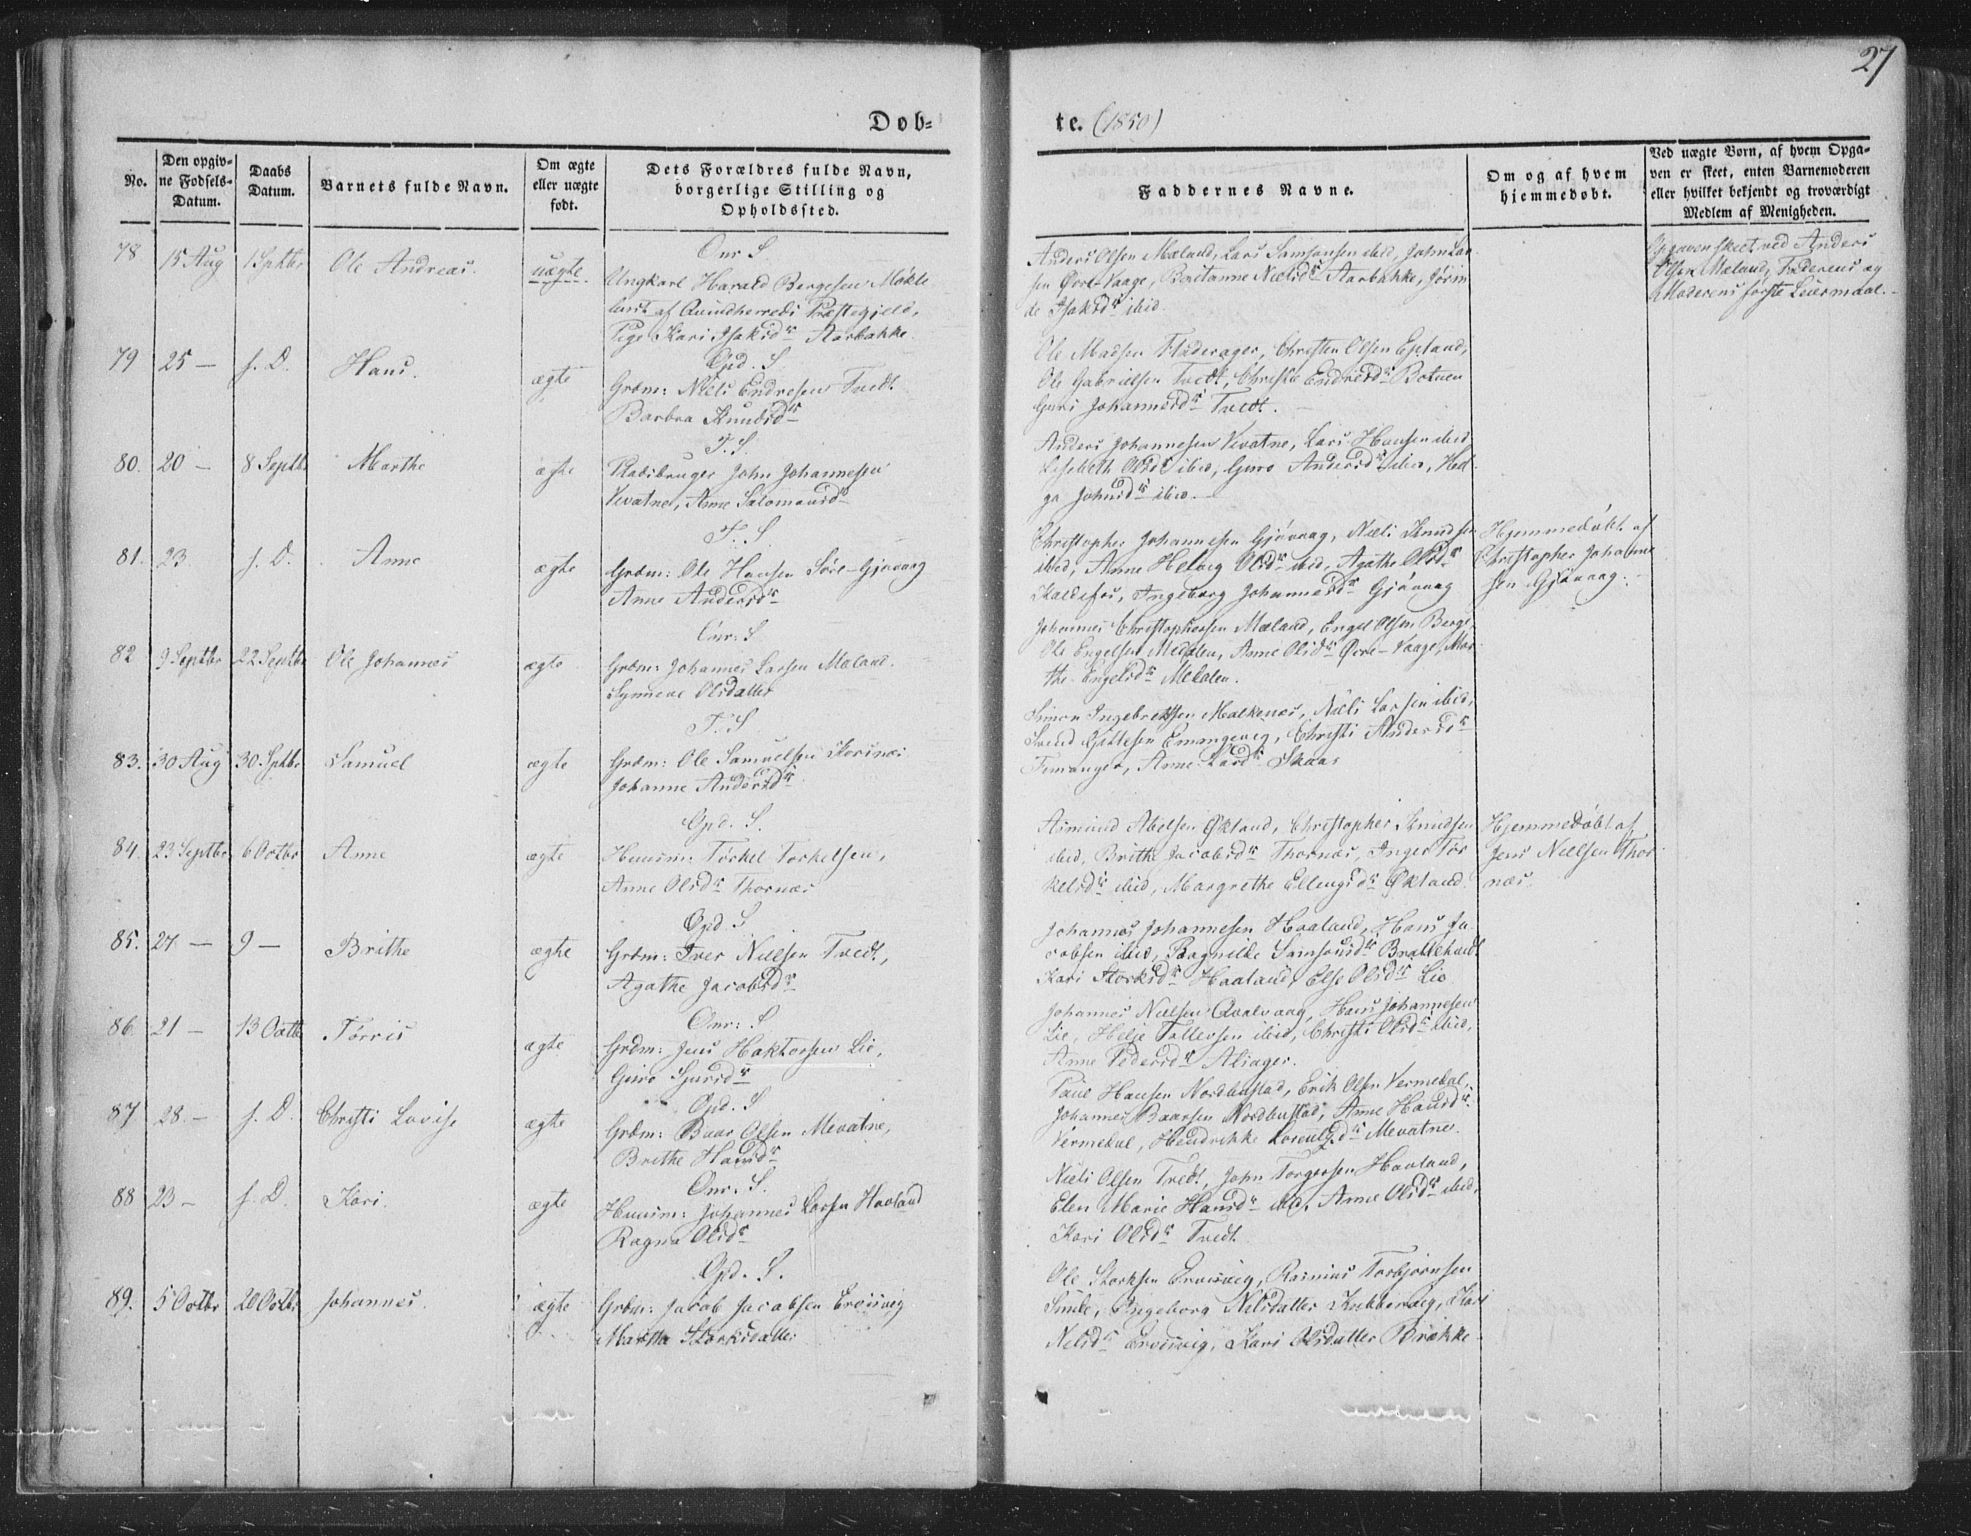 27
Døb=
te. (1850)
No.
Den opgiv=
ne Fødsels=
Datum.
Daabs
Datum.
Barnets fulde Navn.
Om ægte
eller uægte
født.
Dets Forældres fulde Navn,
borgerlige Stilling og
Opholdssted.
Faddernes Navne.
Om og af hvem
hjemmedøbt.
Ved uægte Børn, af hvem Opga=
ven er skeet, enten Barnemoderen
eller hvilket bekjendt og troværdigt
Medlem af Menigheden.
78 15 Aug 1 Sptbr Ole Andreas. uægte
Onr S.
Ungkarl Harald Bergesen Møkle
af Qvindherreds Præstegjeld,
Pige Kari Isaksdr Aarbakke.
Anders Olsen Mæland, Lars Samsonsen ibid, John Lar
sen Øvre-Vaage, Beritanne Nielsdr Aarbakke, Jørin
de Isaksdr ibid.
Opgaven skeet ved Anders
Olsen Mæland, Faderens og
Moderens første Leiermaal.
79 25 — s. D. Hans. ægte
Opd. S.
Grdm: Niels Endresen Tvedt
Barbra Knudsdr
Ole Madsen Fladerager, Christen Olsen Epland,
Ole Gabrielsen Tvedt, Christi Endresdr Botnen
Guri Johannesdr Tvedt.
80. 20 — 8 Septbr Marthe ægte
F. S.
Pladsbruger John Johannesen
Vevatne, Anne Salomonsdr
Anders Johannesen Vevatne, Lars Hansen ibid,
Lisebeth Olsdr ibid, Guro Andersdr ibid, Hel
ga Johnsdr ibid.
81. 23 s. D. Anne ægte
F. S
Grdm: Ole Hansen Søre-Gjøvaag
Anne Andersdr
Christopher Johannesen Gjøvaag, Niels Knudsen
ibid, Anne Helvig Olsdr ibid, Agathe Olsdr
Kaldefos, Ingeborg Johannesdr Gjøvaag
Hjemmedøbt af
Christopher Johanne
sen Gjøvaag.
82 9 Septbr 22 Septbr Ole Johannes ægte
Onr: S
Grdm: Johannes Larsen Mæland.
Synneve Olsdatter
Johannes Christophersen Mæland, Engel Olsen Berge,
Ole Engelsen Medalen, Anne Olsdr Øvre-Vaage, Mar
the Engelsdr Medalen.
83. 30 Aug 30 Sptbr Samuel ægte
F. S
Grdm: Ole Samuelsen Korsnæs
Johanne Andersdr
Simon Ingebretsen Malkenæs, Niels Larsen ibid,
Svend Gittlesen Emmgevig, Christi Andersdr
Femanger, Anne Larsdr Skaar
84. 23 Septbr 6 Octbr Anne ægte
Opd. S.
Huusm: Tørkel Torkelsen,
Anne Olsdr Thornæs
Asmund Abelsen Økland, Christopher Knudsen
ibid, Brithe Jacobsdr Thornæs, Inger Tør
kelsdr ibid, Margrethe Ellengsdr Økland.
Hjemmedøbt af
Jens Nielsen Thor
næs.
85. 27 — 9 — Brithe ægte
Opd. S
Grdm: Iver Nielsen Tvedt,
Agathe Jacobsdr
Johannes Johannesen Haaland, Hans Ja
cobsen ibid, Ragnilde Samsonsdr Brattehaul
Kari Storksdr Haaland, Else Olsdr Lie
86. 21 — 13 Octbr Tørris ægte
Onr: S
Grdm: Jens Haktorsen Lie,
Guro Sjursdr
Johannes Nielsen Qvalvaag, Hans Johannesen
Lie, Helje Tollevsen ibid, Christi Olsdr ibid,
Anne Pedersdr Aliager.
87. 28. — s. D. Christi Lovise ægte
Opd. S
Grdm: Baar Olsen Mevatne,
Brithe Hansdr
Paul Hansen Nordhustad, Erik Olsen Vermedal,
Johannes Baarsen Nordhustad, Anne Hansdr
Vermedal, Hendrikke Mevatne.
88 23 — s. D. Kari. ægte
Onr. S.
Huusm: Johannes Larsen Haaland
Ragna Olsdr
Niels Olsen Tvedt, John Torgersen Haaland,
Elen Marie Hansdr ibid, Anne Olsdr ibid,
Kari Olsdr Tvedt
89. 5 Octbr 20 Octbr Johannes. ægte
Opd. S.
Grdm: Jacob Jacobsen Ersvig
Martha Storksdatter
Ole Storksen Ersvig, Rasmus Torbjørnsen
Ingeborg Nilsdatter Kari
Nilsdr Ersvig, Kari Olsdatter Brække